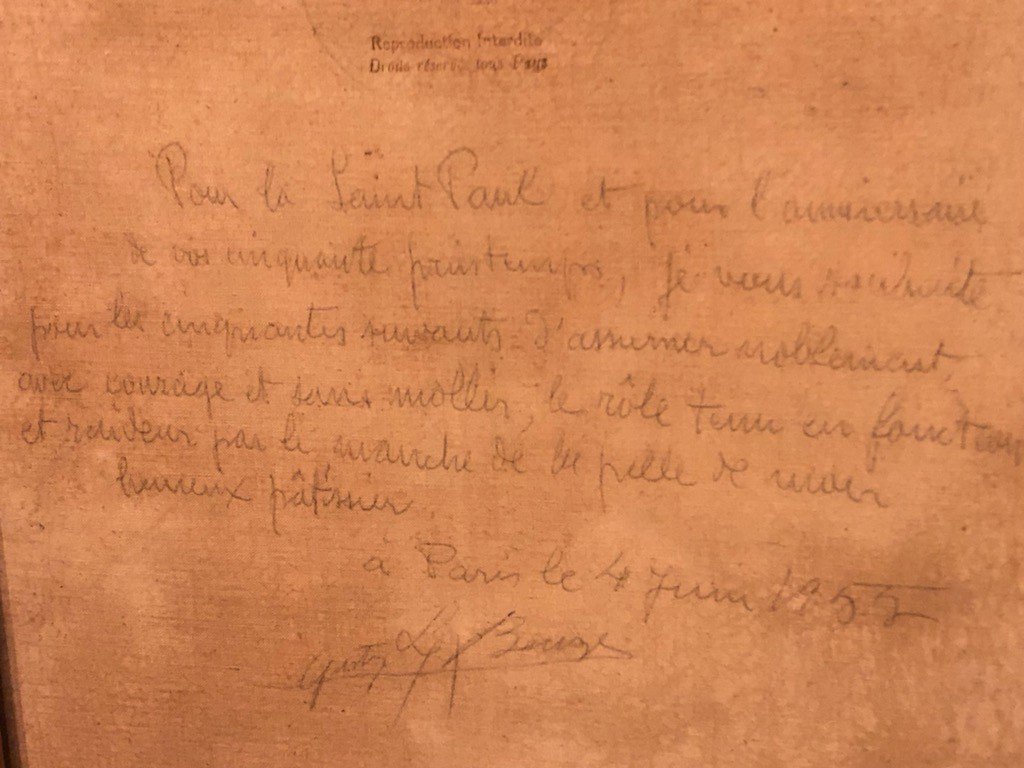 Reproduction Interdite
Droits réservés tous Pays
Pour la Saint Paul et pour l'anniversaire
de vos cinquante printemps, je vous souhaite
pour les cinquantes suivants d'assumer noblement,
avec courage et sans mollir, le rôle tenu en fonction
et raideur par le manche de la pelle de
heureux pâtissier
à Paris le 4 Juin 1955